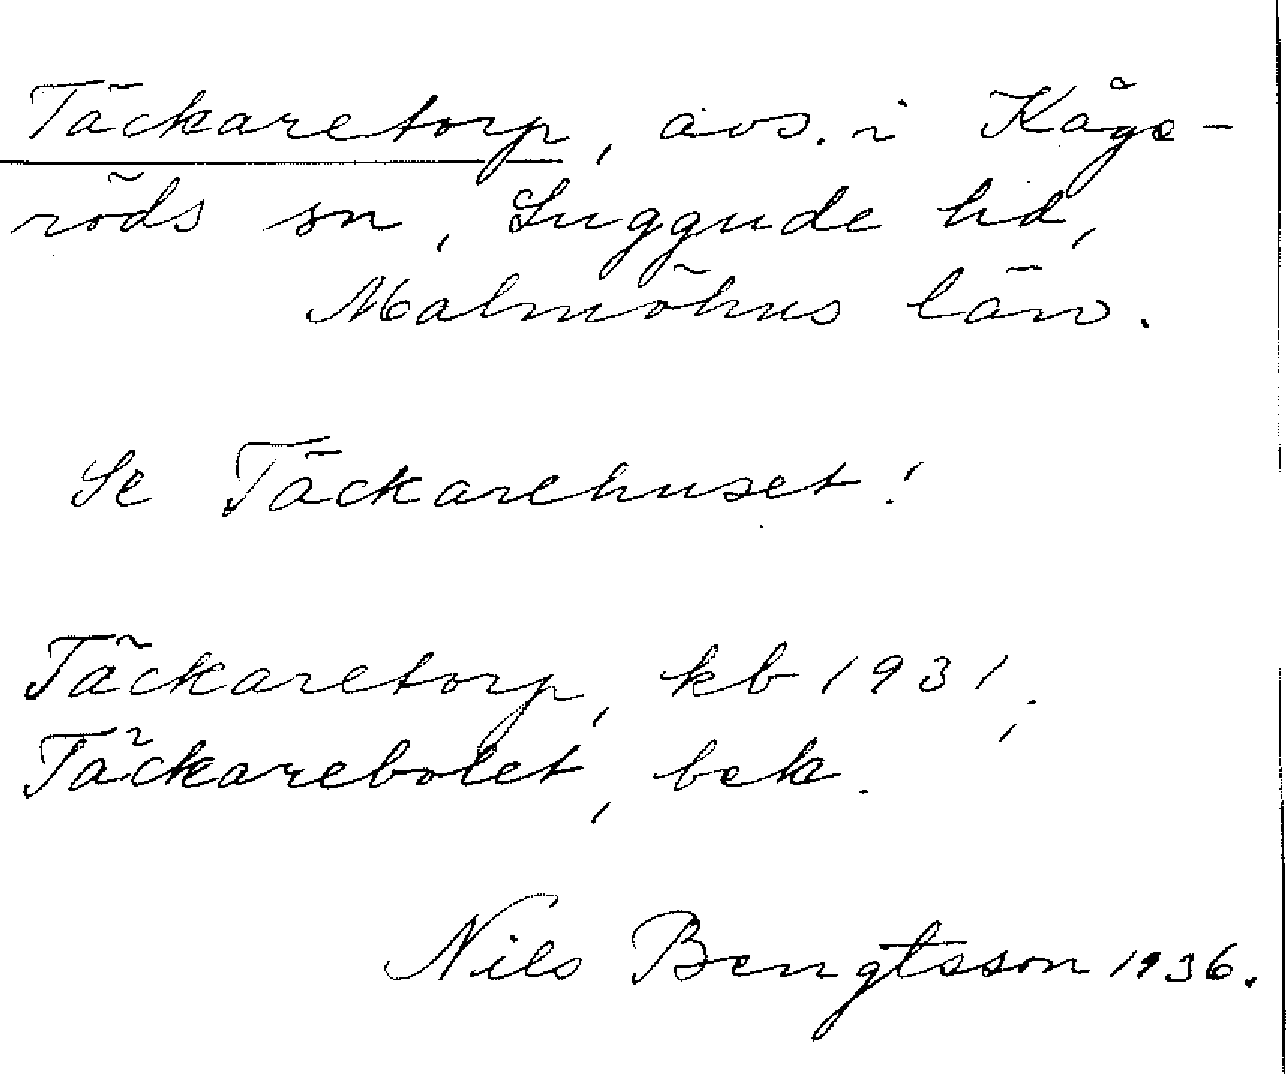 Täckaretorp, avs. i Kåge-
röds sn, Luggude hd,
Malmöhus län.
Se Täckarehuset!
Täckaretorp, kb 1931;
Täckarebolet, bek.
Nils Bengtsson 1936.